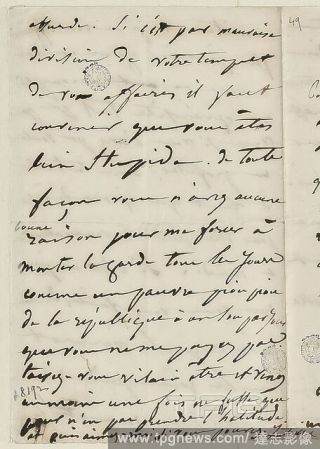 attende. Si c'est par mauvaise
division de votre temps et
de vos affaires il faut
convenir que vous êtes
bien stupide. de toute
façon vous n'avez aucune
bonne
raison pour me forcer à
monter la garde tous les jours
comme un pauvre pioupiou
de la république à un sou par jour
que vous ne me payez pas
vous vilain être et venez
au moins une fois
pour n'en pas perdre l'habitude
et puis
49
www.tpgnews.com / 達志影像